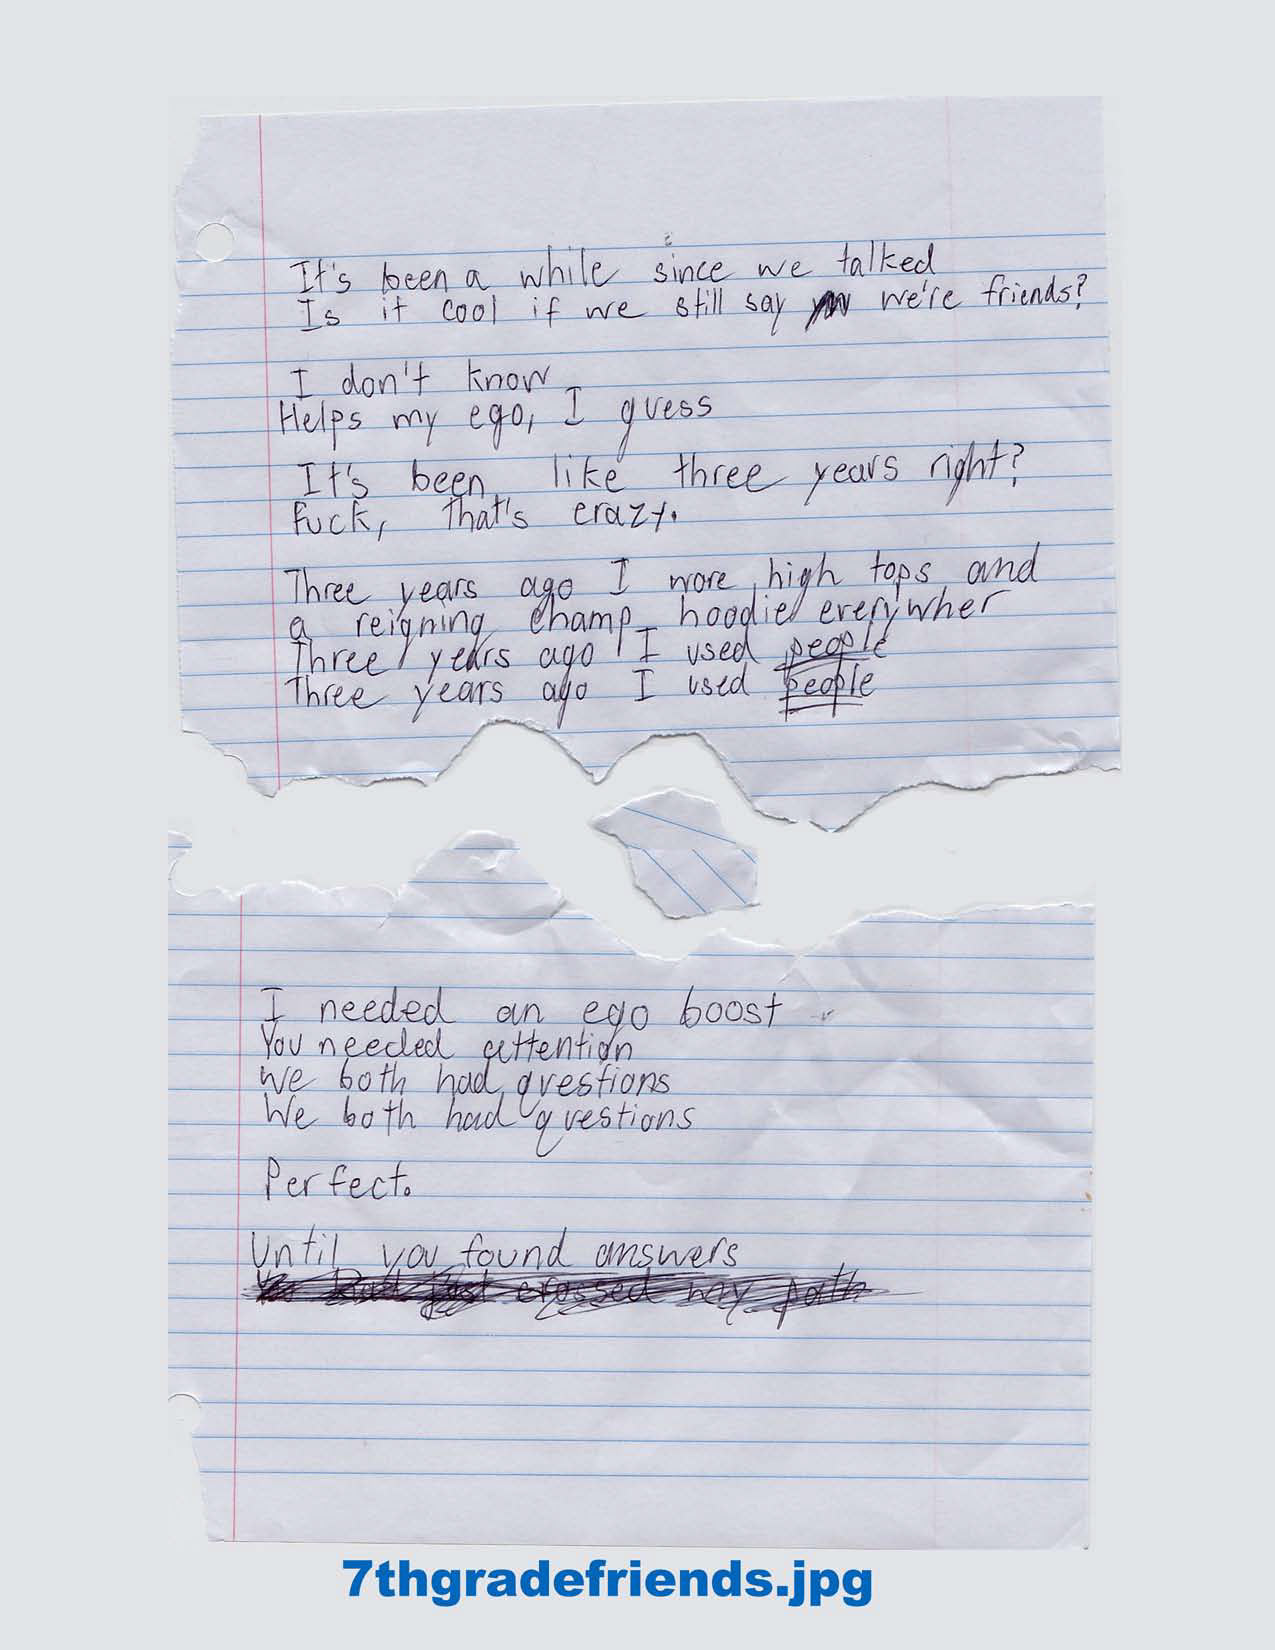 It's been a while since we talked
Is it cool if we still say we're friends?
I don't know
Helps my ego, I guess
It's been like three years right?
Fuck, that's crazy.
Three years ago I wore high tops and
a reigning champ hoodie everywher
Three years ago I used people
Three years ago I used people
I needed an ego boost
You needed attention
We both had questions
We both had questions
Perfect.
Until you found answers
crossed my path
7thgradefriends.jpg